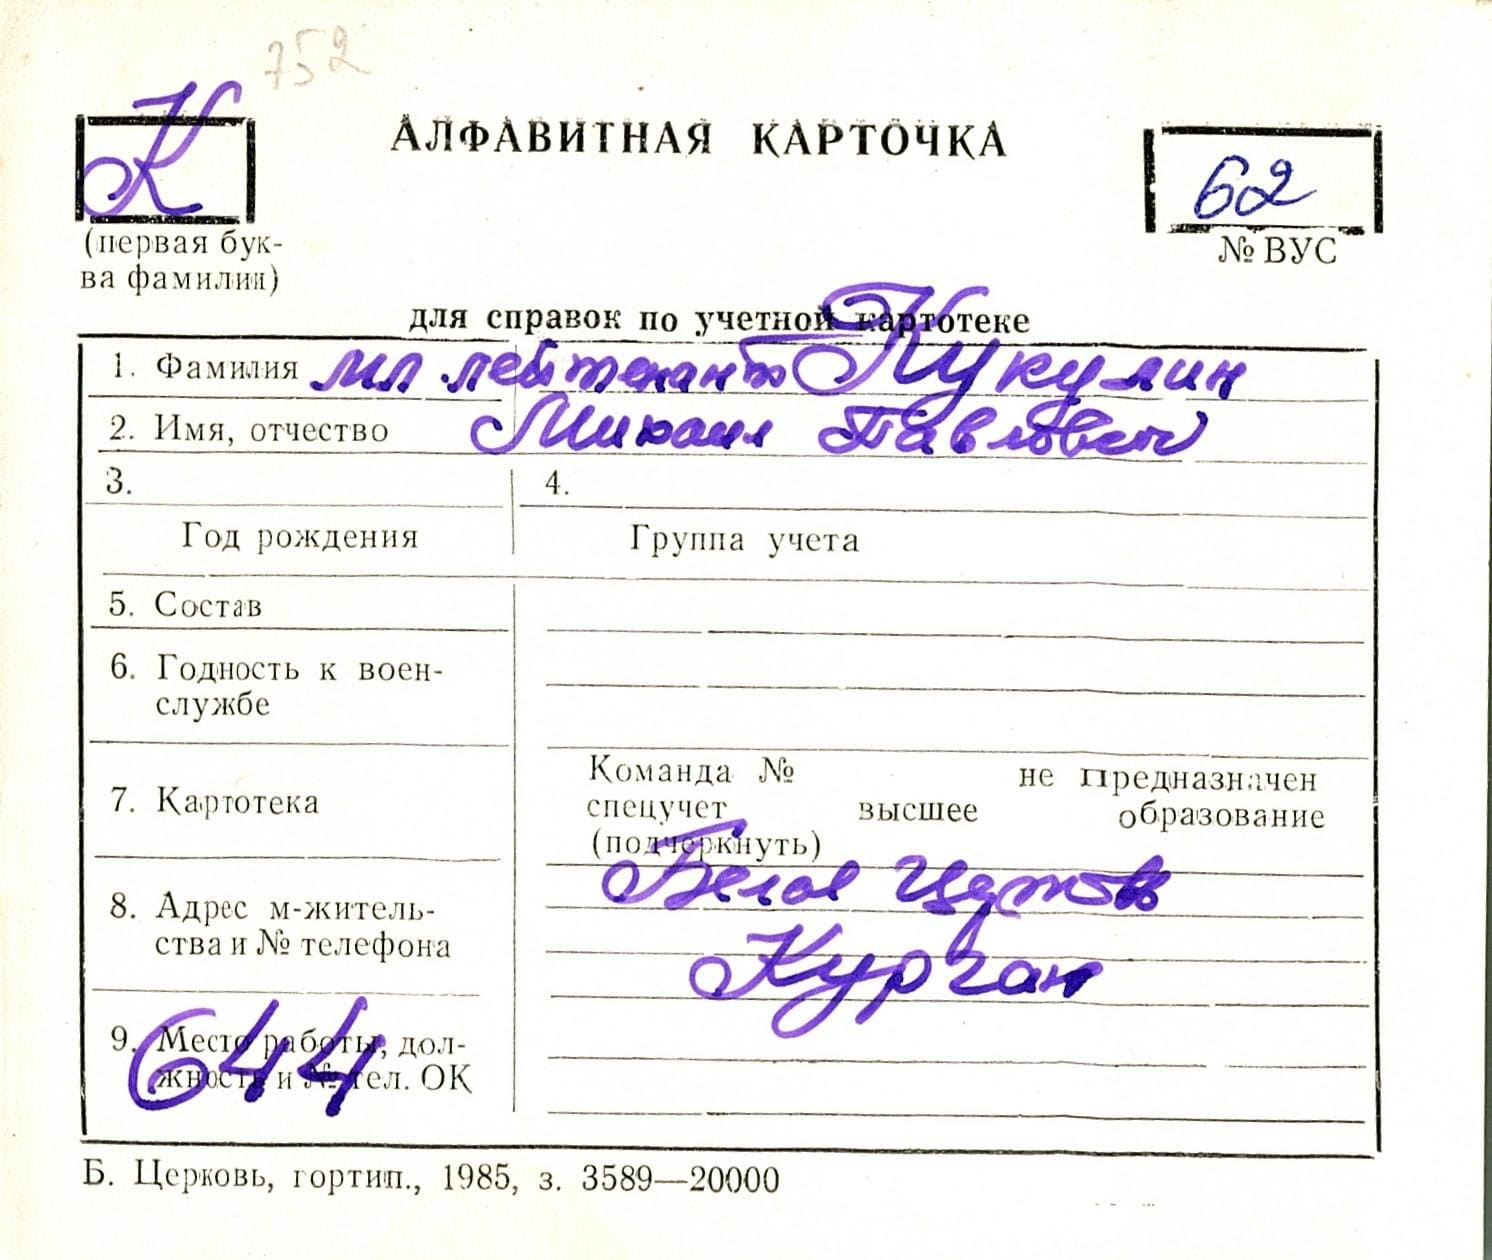 752
К
АЛФАВИТНАЯ КАРТОЧКА
62
(первая бук-
ва фамилии)
№ ВУС
для справок по учетной картотеке
1. Фамилия мл лейтенант Кукулин
2. Имя, отчество Михаил Павлович
3. 4.
Год рождения Группа учета
5. Состав
6. Годность к воен-
службе
7. Картотека
Команда № не предназначен
спецучет высшее образование
(подчеркнуть)
8. Адрес м-житель-
ства и № телефона
Белое
Курган
9. Место работы, дол-
жность и № тел. ОК
644
Б. Церковь, гортип., 1985, з. 3589—20000